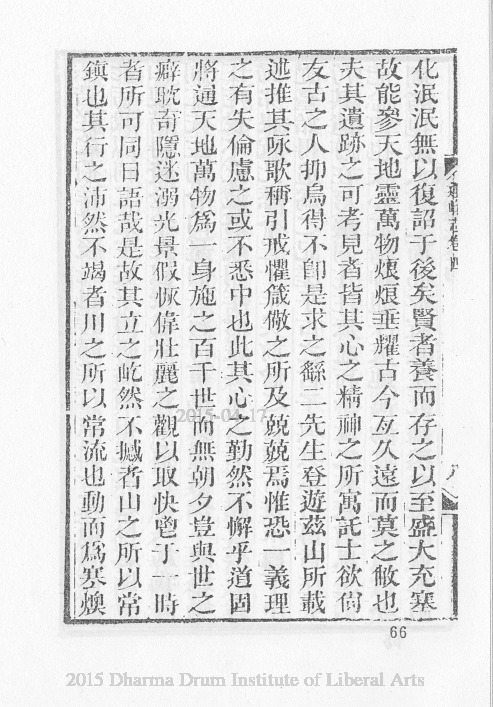 化泯泯無以復詔于後矣賢者養而存之以至盛大充塞
故能參天地靈萬物烺烺垂耀古今亙久遠而莫之敝也
夫其遺跡之可考見者皆其心之精神之所寓託士欲尙
友古之人抑烏得不卽是求之繇二先生登遊茲山所載
述推其咏歌稱引戒懼箴儆之所及兢兢焉惟恐一義理
之有失倫慮之或不悉中也此其心之勤然不懈乎道固
將通天地萬物爲一身施之百千世而無朝夕豈與世之
癖躭奇隱迷溺光景假恢偉壯麗之觀以取快鬯于一時
者所可同日語哉是故其立之屹然不撼者山之所以常
鎮也其行之沛然不竭者川之所以常流也動而爲寒燠
2015-04-17
66
2015 Dharma Drum Institute of Liberal Arts